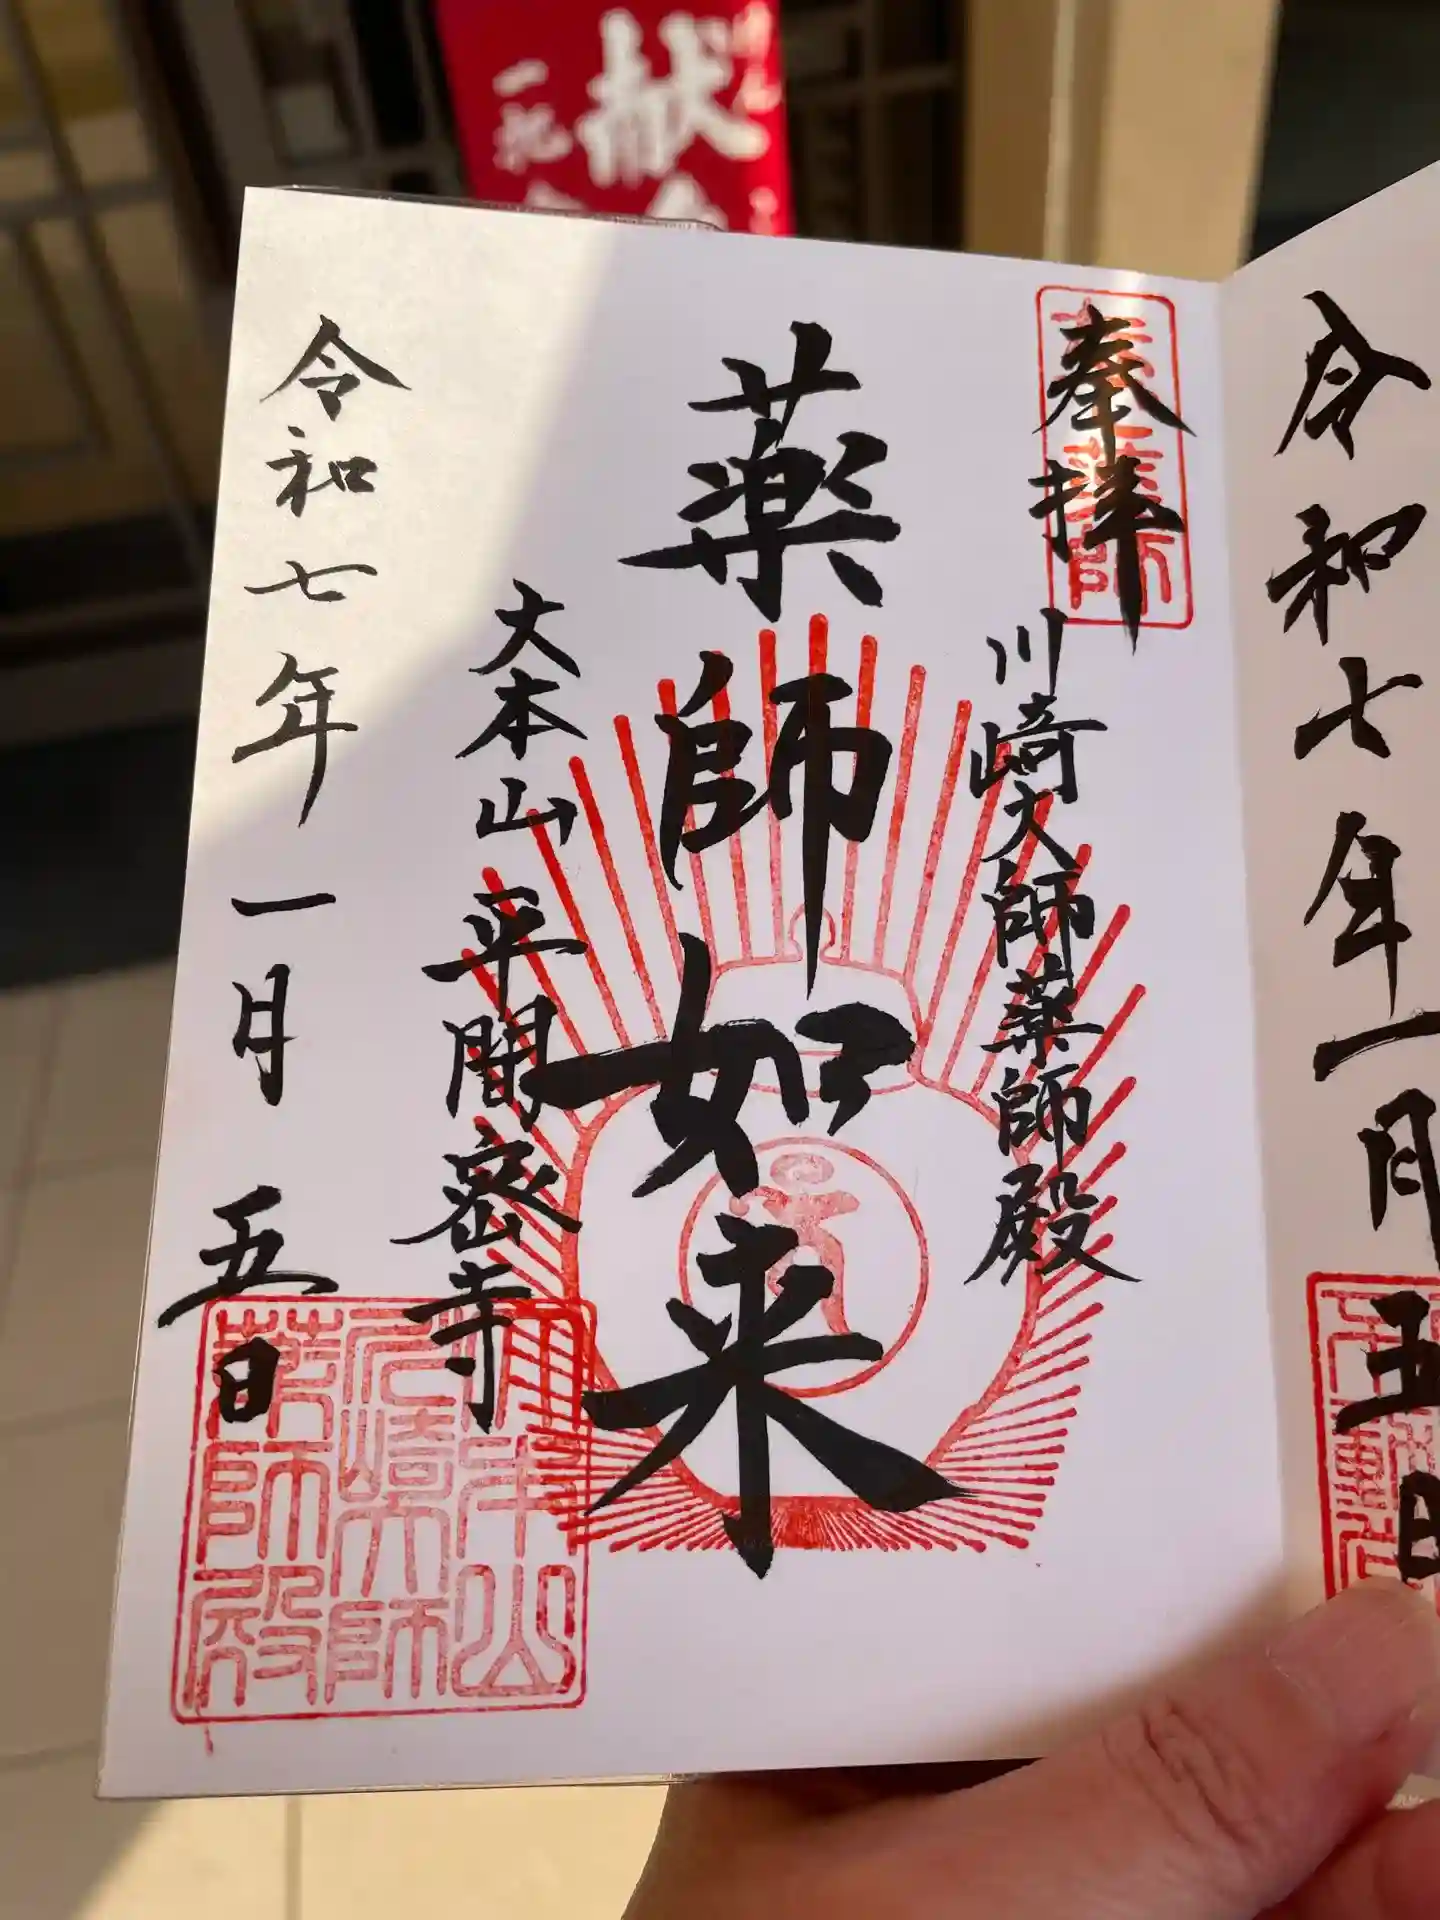 献
令和七年一月五日
奉拝
川崎大師薬師殿
薬師如来
大本山 平間密寺
令和七年一月五日
大本山
川崎大師
薬師殿